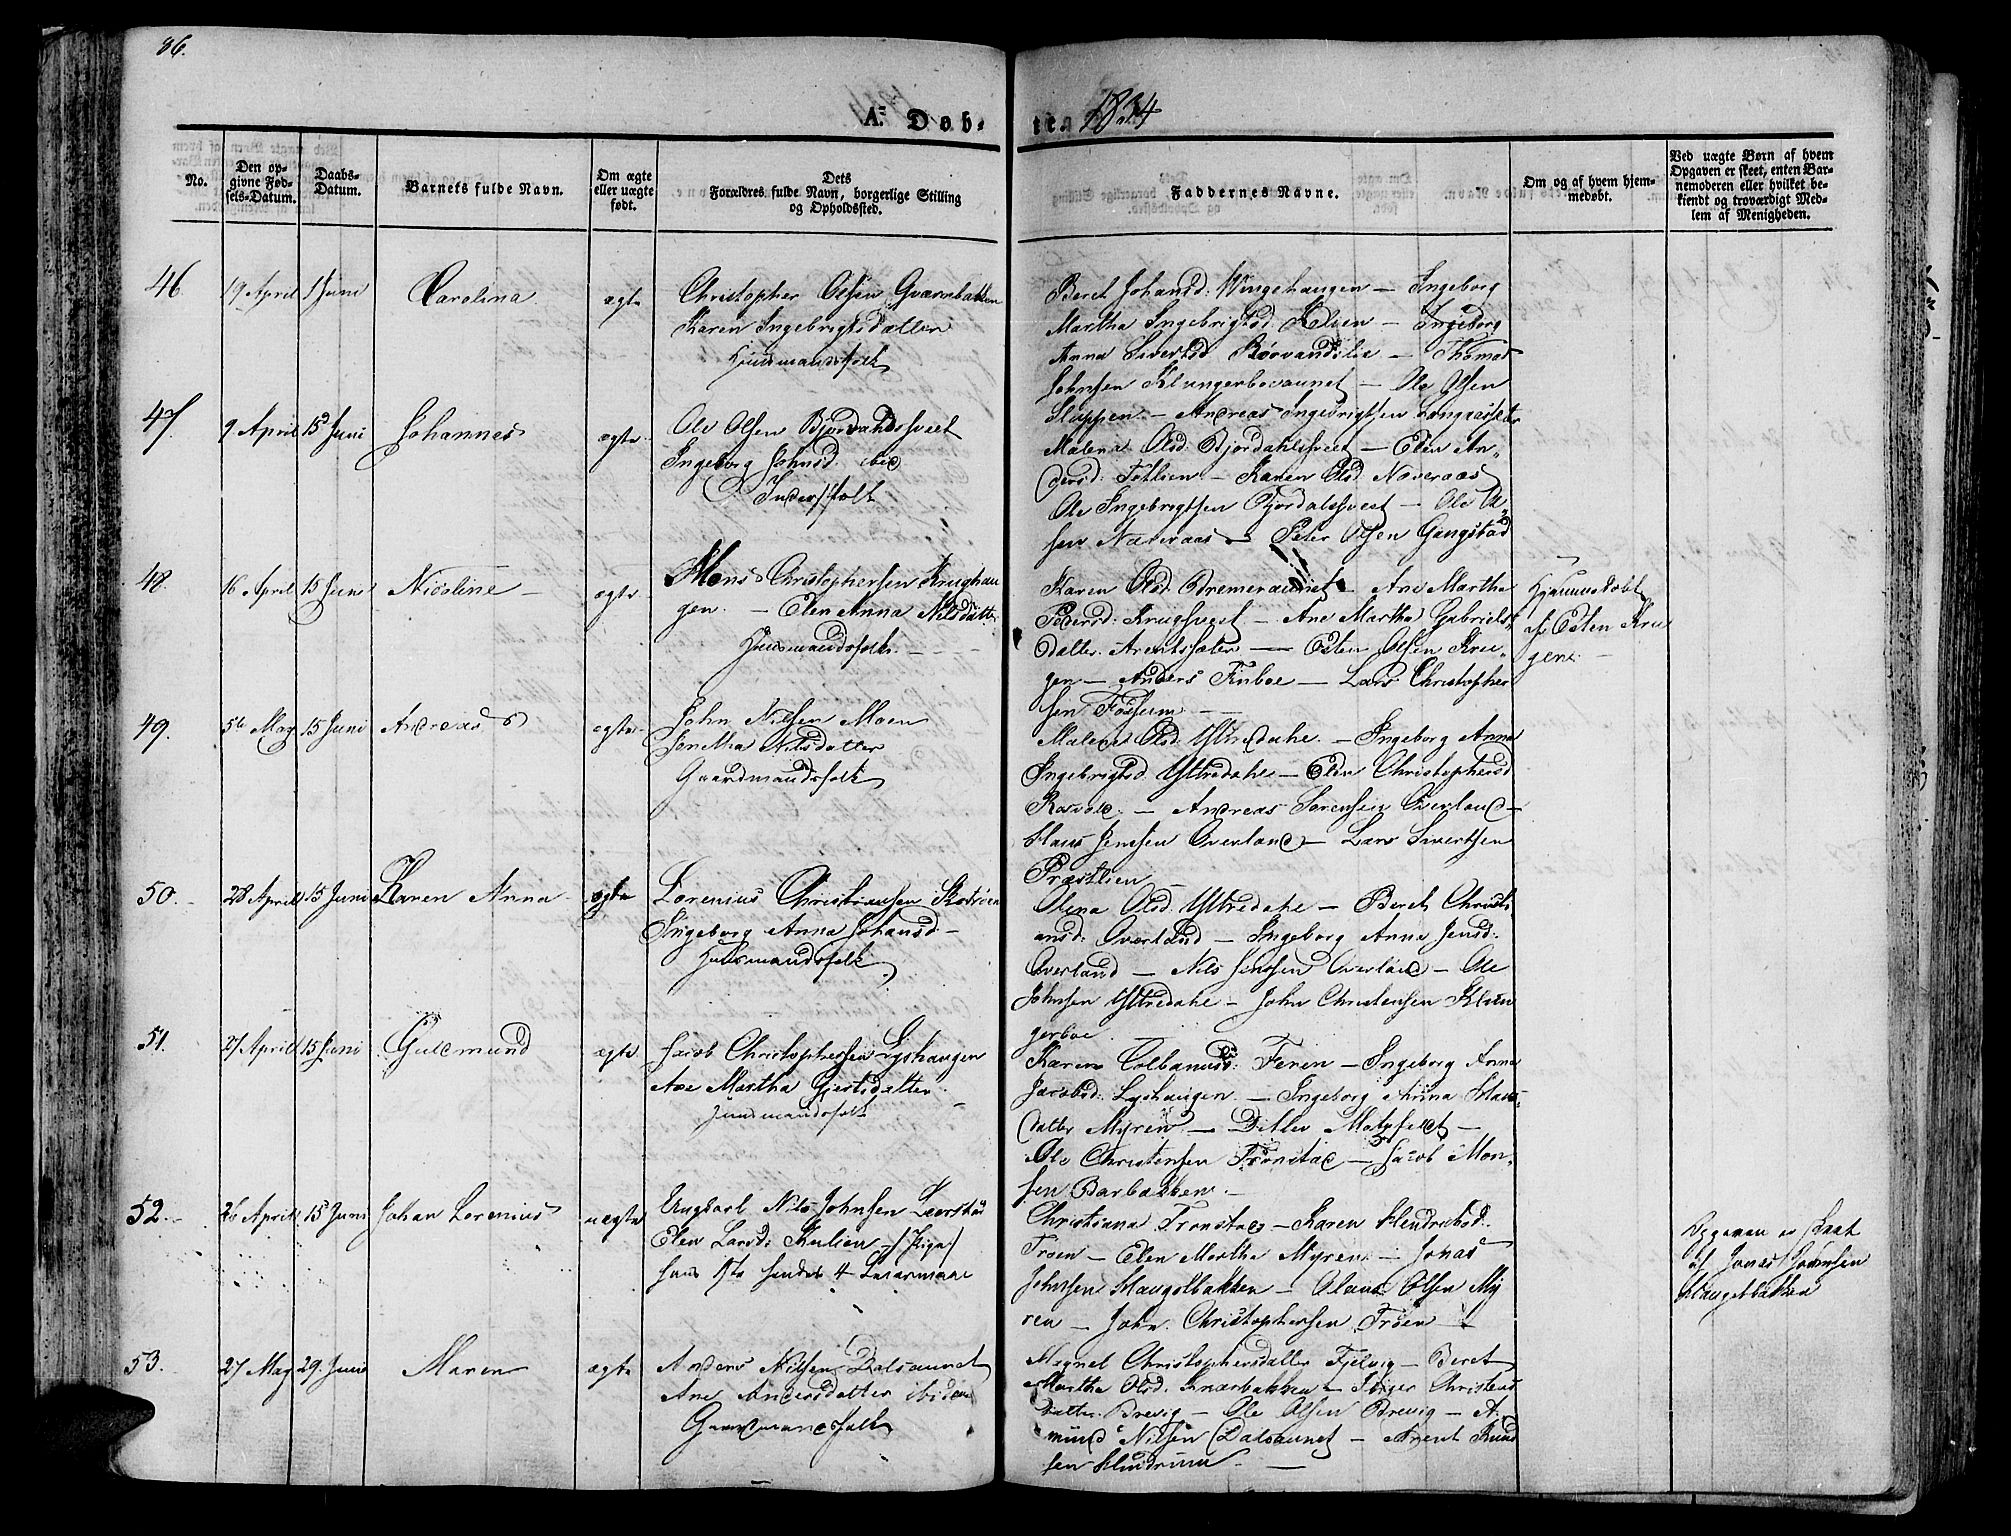 86.
A. Døb-
te. 1834
No.
Den op-
givne Fød-
sels-Datum.
Daabs-
Datum.
Barnets fulde Navn.
Om ægte
eller uægte
født.
Dets
Forældres fulde Navn, borgerlige Stilling
og Opholdssted.
Faddernes Navne.
Om og af hvem hjem-
medøbt.
Ved uægte Børn af hvem
Opgaven er skeet, enten Bar-
nemoderen eller hvilket be-
kiendt og troværdigt Med-
lem af Menigheden.
46 19 April 1 Juni Carolina ægte Christopher Olsen Qværnbakken
Karen Ingebrigtsdatter
Huusmandsfolk
Beret Johansd: Vingehaugen — Ingeborg
Martha Ingebrigtsd: — Ingeborg
Anna Sivertsd: — Thomas
Johnsen Klungerboeaunet — Ole Olsen
Sloppen — Andreas Ingebrigtsen
47. 9 April 15 Juni Johannes ægte Ole Olsen
Ingeborg Johnsd: ibid
Inderstfolk
Malena Olsd: — Elen An-
dersd: — Karen Olsd:
Ole Ingebrigtsen — Ole Ol-
sen — Peter Olsen Gangstad
48. 16 April 15 Juni Nicoline — ægte Mons Christophersen Krughau
gen. — Elen Anna Nilsdatter
Huusmandsfolk
Karen Olsd: — Ane Martha
Pedersd: — Ane Martha Gabriels-
datter — Osten Olsen Kru-
gen — Anders Finboe — Lars Christopher
sen Fossum —
Hjemmedøbt
af Osten Kru
gen. —
49. 5te May 15 Juni Andreas ægte John Nilsen Moen
Nilsdatter
Gaardmandsfolk
Malene Olsd: Yttredahl — Ingeborg Anna
Ingebrigtsd: Yttredahl — Elen Christophersd
— Andreas Sørensen Overland —
Jensen Overland — Lars Sivertsen
Præstlien —
50. 28 April 15 Juni Karen Anna ægte Lorenius Christiansen
Ingeborg Anna Johansd —
Huusmandsfolk
Olena Olsd: Yttredahl — Beret Christi
ansd: Overland — Ingeborg Anna Jensd:
Overland — Nils Jensen Overland — Ole
Johnsen Yttredahl — John Christensen Klun
gerboe. —
51. 27 April 15 Juni Gulemund ægte Jacob Christophersen Lyshaugen
Ane Martha Gjertsdatter
Huusmandsfolk
Karen Colbanusd: Feren — Ingeborg Anna
Jacobsd: Lyshaugen. — Ingeborg Anna
datter Myren — Ditlev —
Ole Christensen Tronstad — Jacob Mon-
sen Barbakken. —
52. 26 April 15 Juni Johan Lorenius uægte Ungkarl Nils Johnsen
Elen Larsd: — /Pige/
hans 1ste hendes 4
Christiana Tronstad — Karen Hendrichsd:
Troen — Elen Martha Myren — Jonas
Johnsen Haugelbakken — Olaus Olsen My
ren — John Christophersen Troen —
Opgaven er skeet
af Jonas Johnsen
Haugelbakken
53. 27 May 29. Juni Maren ægte Anders Nilsen Dalsaunet
Ane Andersdatter ibidem
Gaardmandsfolk
Magnel Christophersdatter Fjelvig — Beret
Martha Olsd: — Christens
datter Brevig — Ole Olsen Brevig — A-
mund Nilsen Dalsaunet — Arent Knud
sen Hindrum —